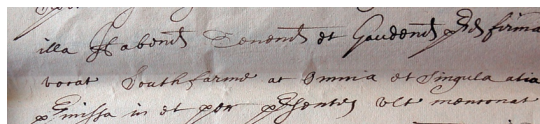 illa Habend Tenend et Gaudend pred firma
vocat Southfarme ac Omnia et Singula alia
premissa in et per presentes ult mencionat